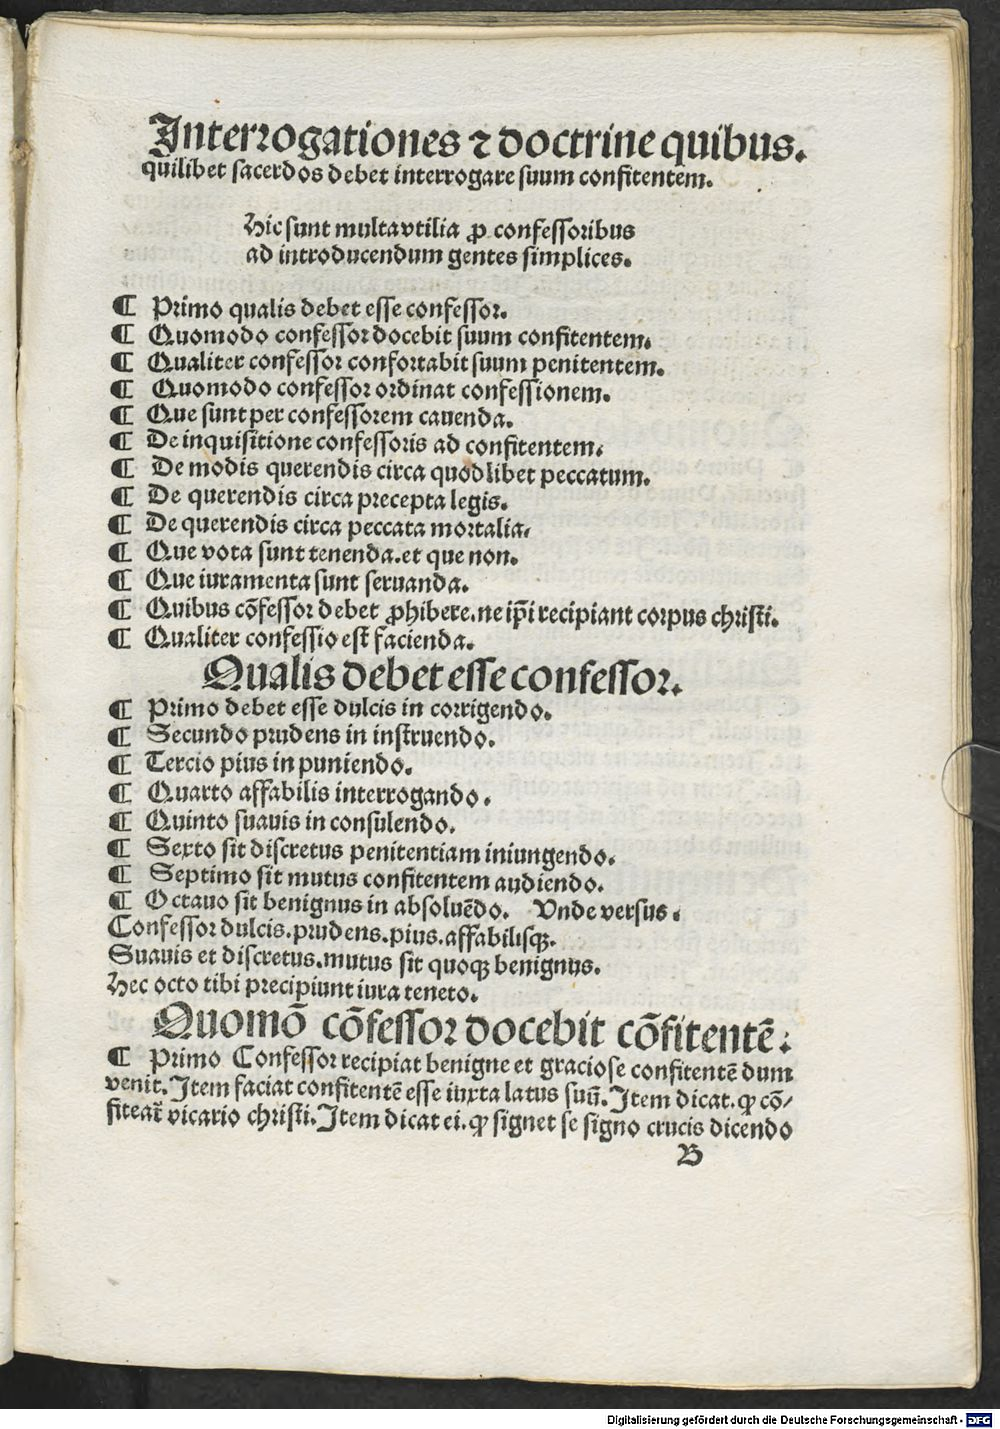 Interrogationes ⁊ doctrine quibus.
quilibet sacerdos debet interrogare suum confitentem.
Hic sunt multa vtilia ꝓ confessoribus
ad introducendum gentes simplices.
¶ Primo qualis debet esse confessor.
¶ Quomodo confessor docebit suum confitentem.
¶ Qualiter confessor confortabit suum penitentem.
¶ Quomodo confessor ordinat confessionem.
¶ Que sunt per confessorem cauenda.
¶ De inquisitione confessoris ad confitentem.
¶ De modis querendis circa quodlibet peccatum.
¶ De querendis circa precepta legis.
¶ De querendis circa peccata mortalia.
¶ Que vota sunt tenenda. et que non.
¶ Que iuramenta sunt seruanda.
¶ Quibus cōfessor debet ꝓhibere. ne ip̄i recipiant corpus christi.
¶ Qualiter confessio est facienda.
Qualis debet esse confessor.
¶ Primo debet esse dulcis in corrigendo.
¶ Secundo prudens in instruendo.
¶ Tercio pius in puniendo.
¶ Quarto affabilis interrogando.
¶ Quinto suauis in consulendo.
¶ Sexto sit discretus penitentiam iniungendo.
¶ Septimo sit mutus confitentem audiendo.
¶ Octauo sit benignus in absoluēdo. Vnde versus.
Confessor dulcis. prudens. pius. affabilisqꝫ.
Suauis et discretus. mutus sit quoqꝫ benignus.
Hec octo tibi precipiunt iura teneto.
Quomō cōfessor docebit cōfitentē.
¶ Primo Confessor recipiat benigne et graciose confitentē dum
venit. Item faciat confitentē esse iuxta latus suū. Item dicat. ꝙ cō/
fiteat᷑ vicario christi. Item dicat ei. ꝙ signet se signo crucis dicendo
B
Digitalisierung gefördert durch die Deutsche Forschungsgemeinschaft - DFG